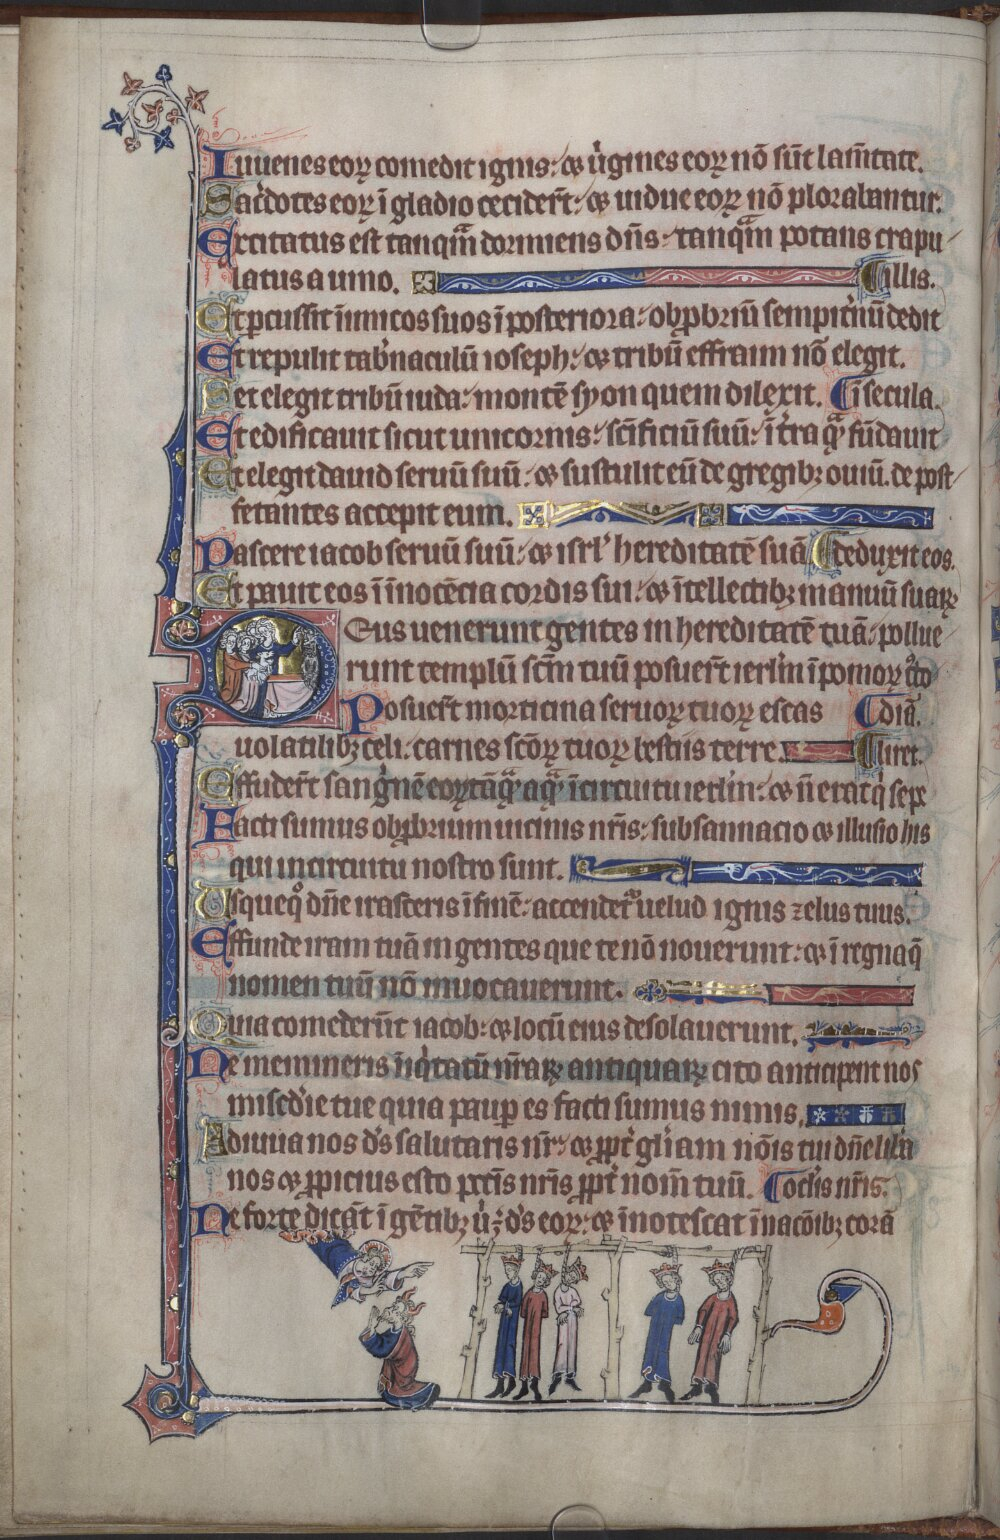 Iuuenes eoꝝ comedit ignis: ⁊ u͛gines eoꝝ nō sūt lam̄tate.
Sac͛dotes eoꝝ ī gladio cecider̄t: ⁊ uidue eoꝝ nō plorabantur.
Excitatus est tanqͣm dormiens dn̄s: tanqͣm potans crapu
latus a uino. ¶illis.
Et ꝑcussit īimicos suos ī posteriora: obꝓbriū sempit͛nū dedit
Et repulit tab͛naculū ioseph: ⁊ tribū effraim nō elegit.
Set elegit tribū iuda: montē syon quem dilexit. ¶ī secula.
Et edificauit sicut unicornis: sc̄ificiū suū: ī t͛ra qͣ fūdauit
Et elegit dauid seruū suū: ⁊ sustulit eū de gregibꝫ ouiū. de post
fetantes accepit eum.
Pascere iacob seruū suū: ⁊ isrl̓ hereditatē suā ¶deduxit eos.
Et pauit eos ī īnocēcia cordis sui: ⁊ ītellectibꝫ manuū suaꝝ
Deus uenerunt gentes in hereditatē tuā: pollue
runt templū sc̄m tuū posuer̄t ierl̄m ī pomoꝝ
Posuer̄t morticina seruoꝝ tuoꝝ escas ¶diā.
uolatilibꝫ celi: carnes sc̄oꝝ tuoꝝ bestiis terre. ¶liret.
Effuder̄t sang͛nē eoꝝ tāqͣ aqͣ ī circuitu ierl̄m: ⁊ n̄ erat q͛ sepe
Facti sumus obꝓbrium uicinis nr̄is: subsannacio ⁊ illusio his
qui in circuitu nostro sunt.
Usqueqͦ dn̄e irasceris ī finē: accendet᷑ uelud ignis zelus tuus.
Effunde iram tuā in gentes que te nō nouerunt: ⁊ ī regna q̄
nomen tuū nō inuocauerunt.
Quia comederūt iacob: ⁊ locū eius desolauerunt.
Ne memineris īiq͛tatū nr̄aꝝ antiquaꝝ cito anticipent nos
mis̄cd̓ie tue quia pauꝑes facti sumus nimis.
Adiuua nos d̄s salutaris nr̄: ⁊ ꝓpt͛ gl̓iam nōis tui dn̄e lib̓a
nos ⁊ ꝓpicius esto pctīs nr̄is ꝓpt͛ nom̄ tuū. ¶oclis nr̄is.
Ne forte dicāt ī gētibꝫ u͛ ē d̄s eoꝝ: ⁊ īnotescat ī nacōibꝫ corā